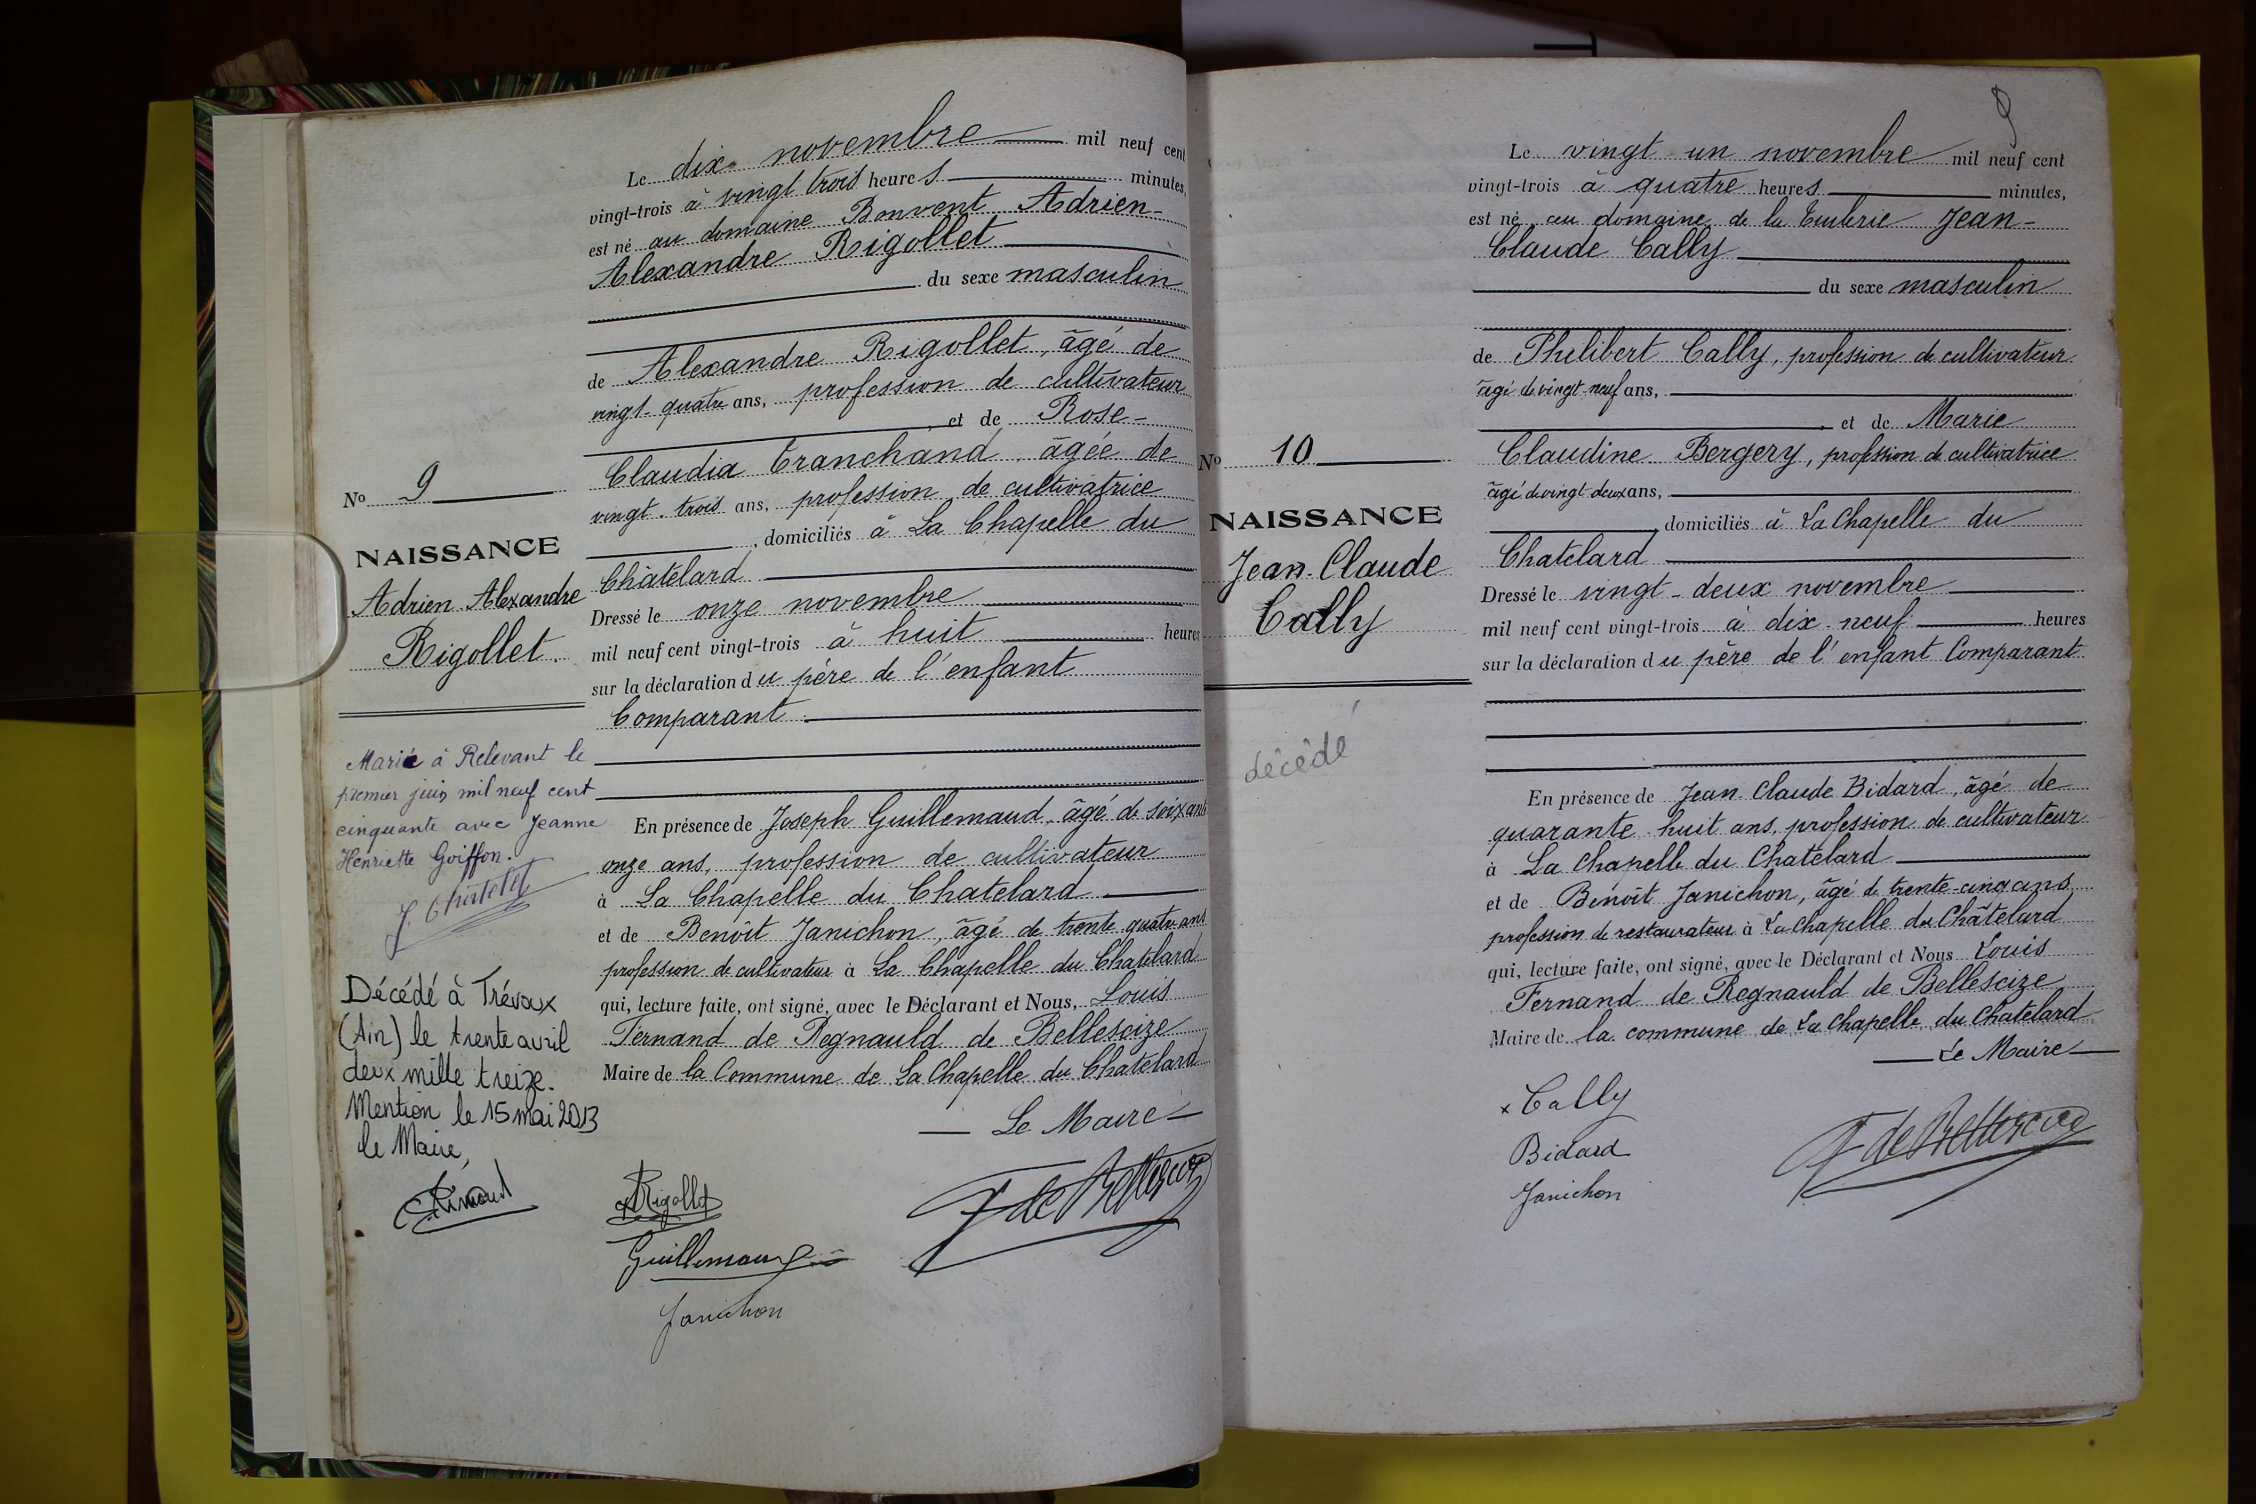 Le dix novembre mil neuf cent
vingt-trois à vingt trois heures minutes,
est né au domaine Bonvent Adrien-
Alexandre Rigollet
du sexe masculin
de Alexandre Rigollet, âgé de
vingt-quatre ans, profession de cultivateur
, et de Rose-
Claudia Tranchand, âgée de
vingt-trois ans, profession de cultivatrice
, domiciliés à La Chapelle du
Châtelard
Dressé le onze novembre
mil neuf cent vingt-trois à huit heures
sur la déclaration du père de l'enfant
Comparant.
En présence de Joseph Guillemaud, âgé de soixante
onze ans, profession de cultivateur
à La Chapelle du Chatelard
et de Benoît Janichon, âgé de trente quatre ans
profession de cultivateur à La Chapelle du Chatelard
qui, lecture faite, ont signé, avec le Déclarant et Nous, Louis
Fernand de Regnauld de Bellescize
Maire de la Commune de La Chapelle du Chatelard
Le Maire
ARigollet
Guillemaud
Janichon
F de Bellescize
No 9
NAISSANCE
Adrien Alexandre
Rigollet.
Marié à Relevant le
premier juin mil neuf cent
cinquante avec Jeanne
Henriette Goiffon.
Décédé à Trévoux
(Ain) le trente avril
deux mille treize.
Mention le 15 mai 2013
le Maire,
9
Le vingt un novembre mil neuf cent
vingt-trois à quatre heures minutes,
est né au domaine de la Tuilerie Jean-
Claude Cally
du sexe masculin
de Philibert Cally, profession de cultivateur
âgé de vingt-neuf ans,
, et de Marie
Claudine Bergery, profession de cultivatrice
âgé de vingt-deux ans,
, domiciliés à La Chapelle du
Chatelard
Dressé le vingt-deux novembre
mil neuf cent vingt-trois à dix-neuf heures
sur la déclaration du père de l'enfant Comparant
En présence de Jean-Claude Bidard, âgé de
quarante-huit ans, profession de cultivateur
à La Chapelle du Chatelard
et de Benoît Janichon, âgé de trente-cinq ans
profession de restaurateur à La Chapelle du Châtelard
qui, lecture faite, ont signé, avec le Déclarant et Nous Louis
Fernand de Regnauld de Bellescize
Maire de la commune de La Chapelle du Chatelard
Le Maire
x Cally
Bidard
Janichon
F de Bellescize
No 10
NAISSANCE
Jean-Claude
Cally
décédé